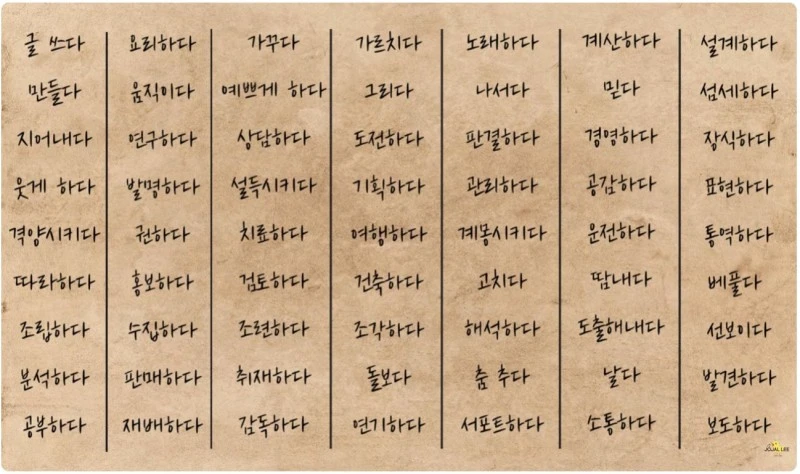 글 쓰다 요리하다 가꾸다 가르치다 노래하다 계산하다 설계하다
만들다 움직이다 예쁘게 하다 그리다 나서다 믿다 섬세하다
지어내다 연구하다 상담하다 도전하다 판결하다 경영하다 장식하다
웃게 하다 발명하다 설득시키다 기획하다 관리하다 공감하다 표현하다
격양시키다 권하다 치료하다 여행하다 계몽시키다 운전하다 통역하다
따라하다 홍보하다 검토하다 건축하다 고치다 땀내다 베풀다
조립하다 수집하다 조련하다 조각하다 해석하다 도출해내다 선보이다
분석하다 판매하다 취재하다 돌보다 춤 추다 날다 발견하다
공부하다 재배하다 감독하다 연기하다 서포트하다 소통하다 보도하다
JOJAL LEE